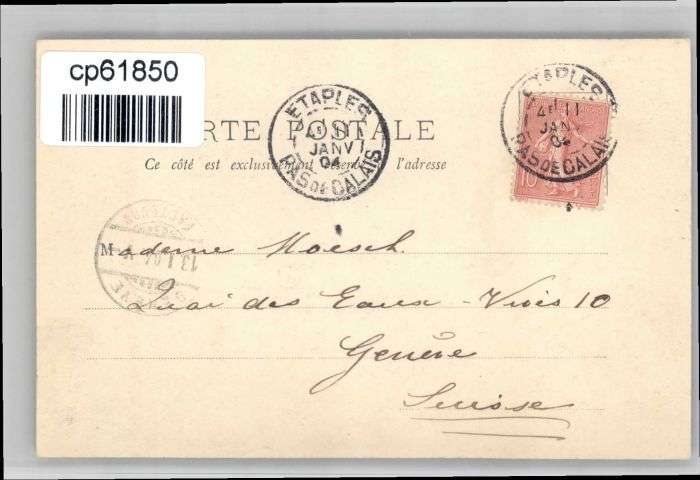 cp61850
CARTE POSTALE
Ce côté est exclusivement réservé à l'adresse
ETAPLES
4E 11
JANV
04
PAS DE CALAIS
ETAPLES
4E 11
JANV
04
PAS DE CALAIS
10
13.I.04
GENÈVE
Madame Hoesch.
Quai des Eaux-Vives 10
Genève
Suisse